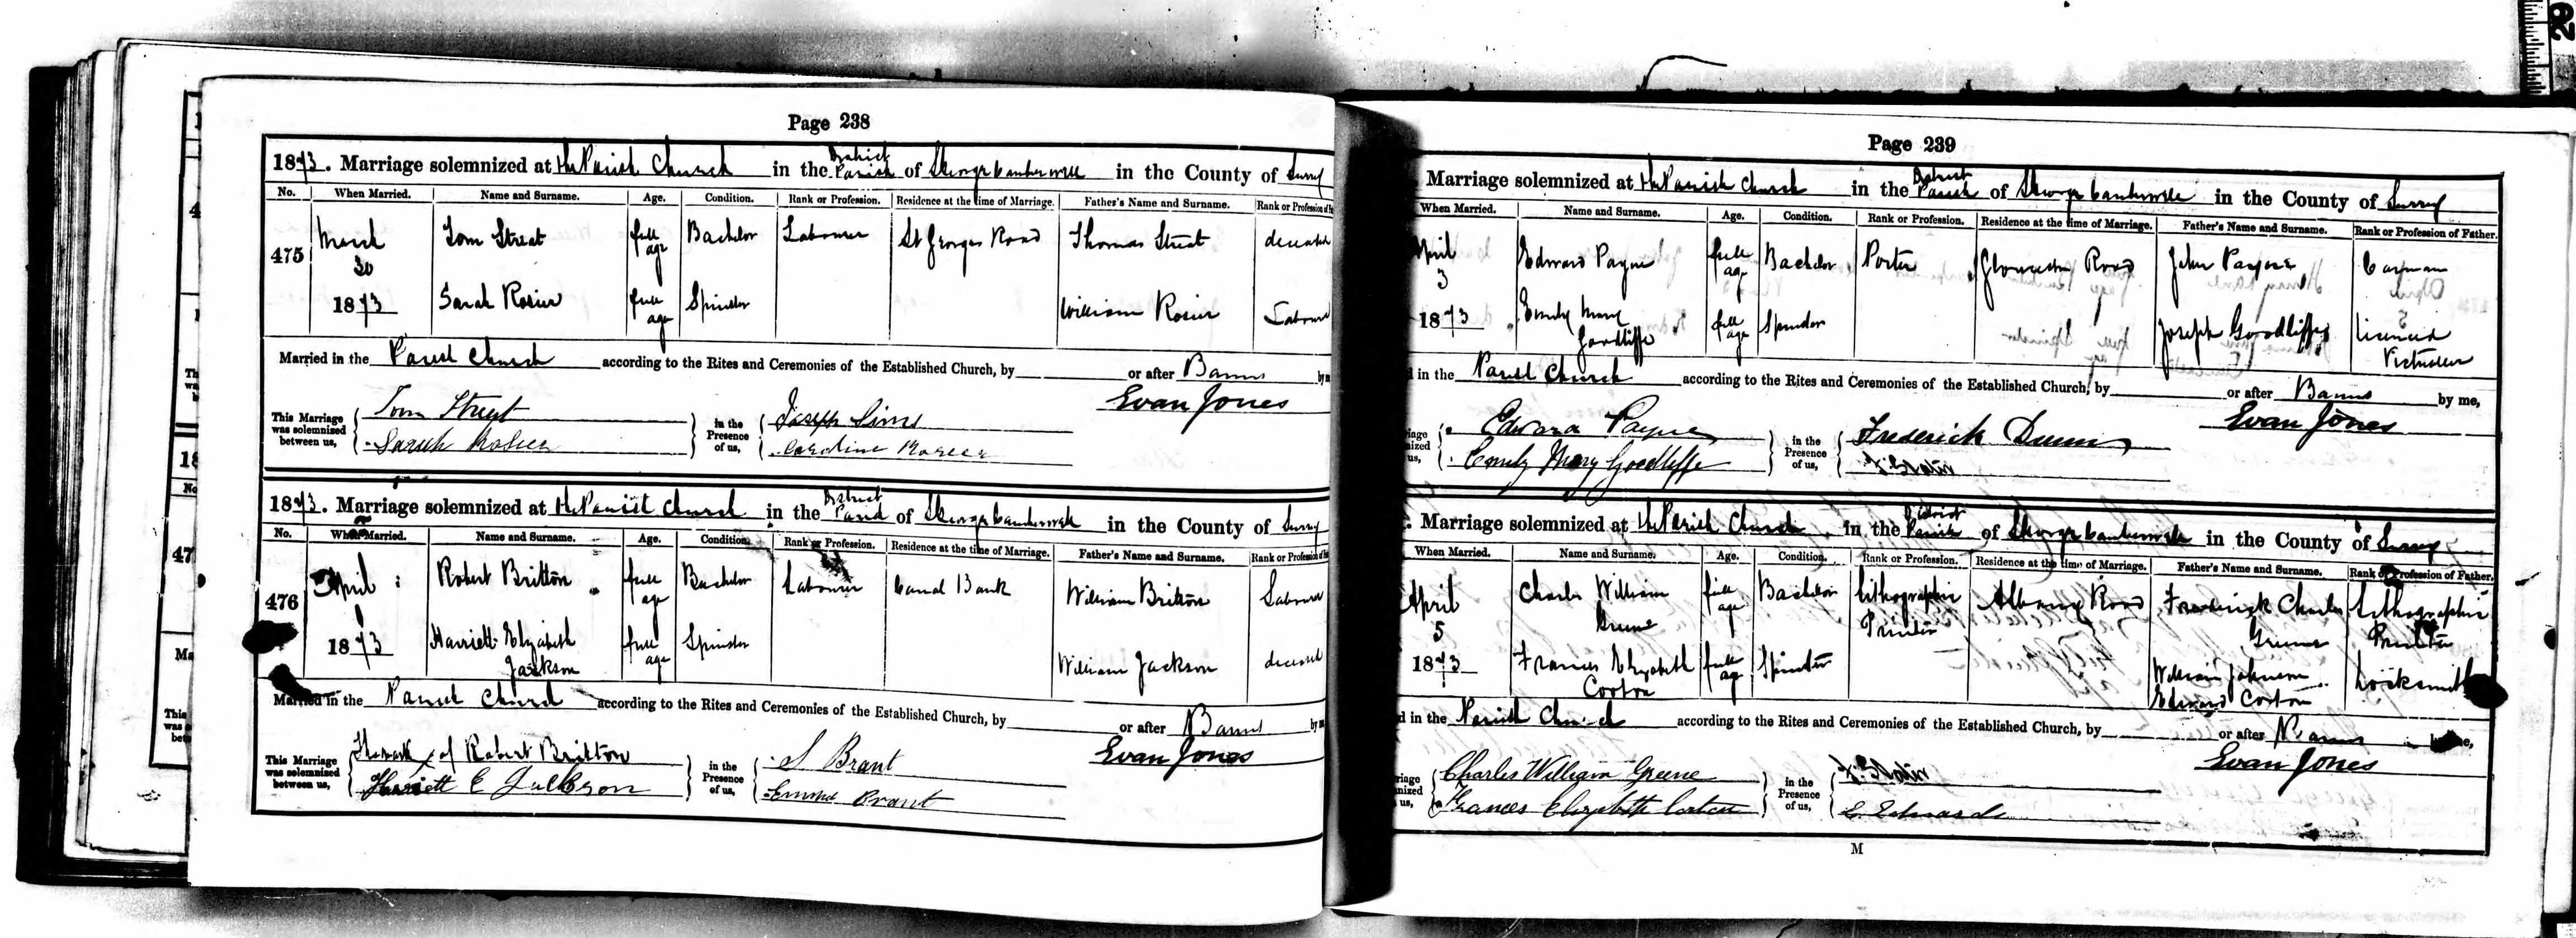 Page 238
1873. Marriage solemnized at the Parish Church in the District Parish of St George Camberwell in the County of Surrey
No. When Married. Name and Surname. Age. Condition. Rank or Profession. Residence at the time of Marriage. Father's Name and Surname. Rank or Profession of
475 March 30 1873 Tom Street full age Bachelor Labourer St Georges Road Thomas Street deceased
Sarah Rosier full age Spinster William Rosier Labourer
Married in the Parish Church according to the Rites and Ceremonies of the Established Church, by or after Banns by
Evan Jones
This Marriage was solemnized between us, Tom Street in the Presence of us, Joseph Sims
Sarah Rosier Caroline Rosier
1873. Marriage solemnized at the Parish Church in the District Parish of St George Camberwell in the County of Surrey
No. When Married. Name and Surname. Age. Condition. Rank or Profession. Residence at the time of Marriage. Father's Name and Surname. Rank or Profession of
476 April 1873 Robert Britton full age Bachelor Labourer Canal Bank William Britton Labourer
Harriett Elizabeth Jackson full age Spinster William Jackson deceased
Married in the Parish Church according to the Rites and Ceremonies of the Established Church, by or after Banns by
Evan Jones
This Marriage was solemnized between us, The mark x of Robert Britton in the Presence of us, S Brant
Harriett E Jackson Emma Brant
Page 239
Marriage solemnized at the Parish Church in the District Parish of St George Camberwell in the County of Surrey
When Married. Name and Surname. Age. Condition. Rank or Profession. Residence at the time of Marriage. Father's Name and Surname. Rank or Profession of Father.
April 3 1873 Edward Payne full age Bachelor Porter Gloucester Road John Payne Carman
Emily Mary Goodliffe full age Spinster Joseph Goodliffe Licensed Victualler
in the Parish Church according to the Rites and Ceremonies of the Established Church, by or after Banns by me,
Evan Jones
Edward Payne in the Presence of us, Frederick Dunn
Emily Mary Goodliffe
Marriage solemnized at the Parish Church in the District Parish of St George Camberwell in the County of Surrey
When Married. Name and Surname. Age. Condition. Rank or Profession. Residence at the time of Marriage. Father's Name and Surname. Rank or Profession of Father.
April 5 1873 Charles William Greene full age Bachelor Lithographic Printer Albany Road Frederick Charles Greene Lithographic Printer
Frances Elizabeth Corton full age Spinster William Johnson Edward Corton Locksmith
in the Parish Church according to the Rites and Ceremonies of the Established Church, by or after Banns me,
Evan Jones
Charles William Greene in the Presence of us,
Frances Elizabeth Corton E. Edwards
M